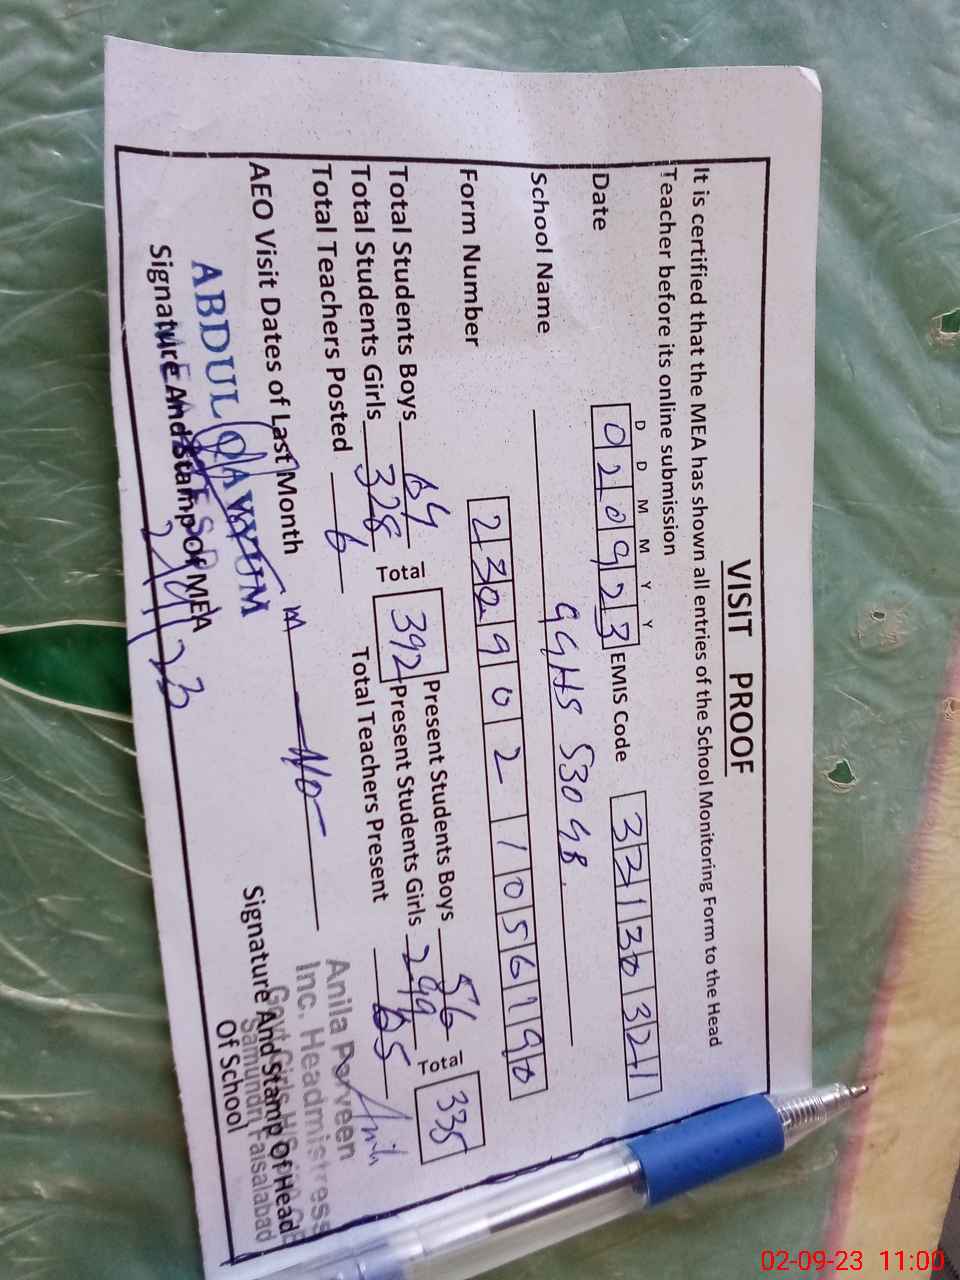 VISIT PROOF
It is certified that the MEA has shown all entries of the School Monitoring Form to the Head
Teacher before its online submission
D D M M Y Y
Date 020923 EMIS Code 33130321
School Name GGHS 530 GB.
Form Number 2309021056190
Total Students Boys 64 Total 392 Present Students Boys 56 Total 335
Total Students Girls 328 Present Students Girls 299
Total Teachers Posted 6 Total Teachers Present 05
AEO Visit Dates of Last Month No
ABDUL QAYYUM
Signature And Stamp Of MEA
2/9/23
Anila Parveen
Inc. Headmistress
Govt Girls
Samundri Faisalabad
Signature And Stamp Of Head
Of School
02-09-23 11:00